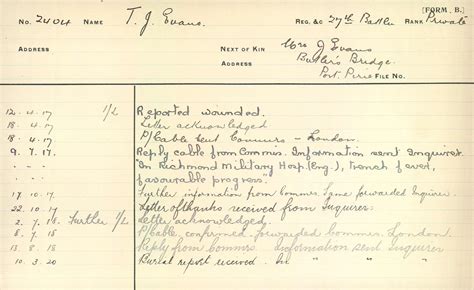 [FORM B.]
No. 2404 NAME T. J. Evans. REG. & 27th Battn RANK Private
ADDRESS NEXT OF KIN Mrs J Evans
ADDRESS Butler's Bridge.
Port Pirie FILE No.
12. 4. 17 1/L Reported wounded.
18. 4. 17 Letter acknowledged
18. 4. 17 P/Cable sent Commrs - London.
9. 7. 17. Reply cable from Commrs. Information sent Enquirer.
"In Richmond Military Hosp. (Eng.), trench fever,
favourable progress".
17. 10. 17. Further information from Commrs. forwarded Inquirer.
22. 10. 17 Letter of thanks received from Inquirer.
2. 7. 18. Further 1/L Letter acknowledged.
8. 7. 18 P/Cable confirmed forwarded Commrs. London.
13. 8. 18 Reply from Commrs Information sent Enquirer
10. 3. 20 Burial report received. In " " "